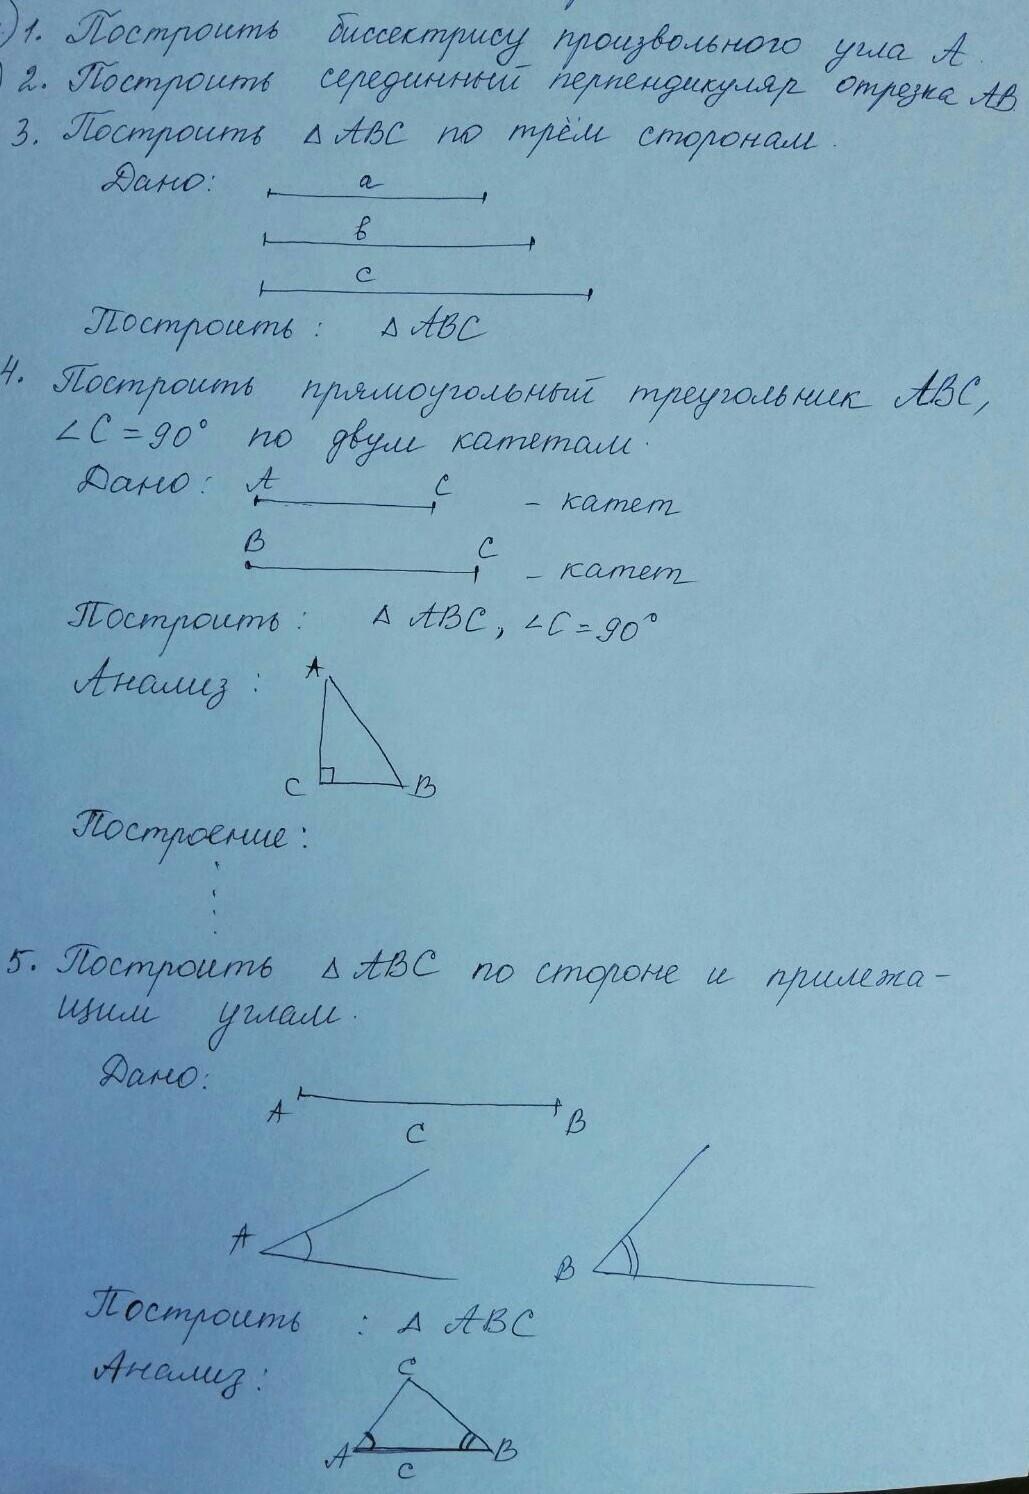 1. Построить биссектрису произвольного угла A.
2. Построить серединный перпендикуляр отрезка AB.
3. Построить △ABC по трём сторонам.
Дано: a
в
c
Построить: △ABC
4. Построить прямоугольный треугольник ABC,
∠C=90° по двум катетам.
Дано: A C - катет
B C - катет
Построить: △ABC, ∠C=90°
Анализ: A
C B
Построение:
5. Построить △ABC по стороне и прилежа-
щим углам.
Дано:
A C B
A B
Построить : △ABC
Анализ: C
A B
C